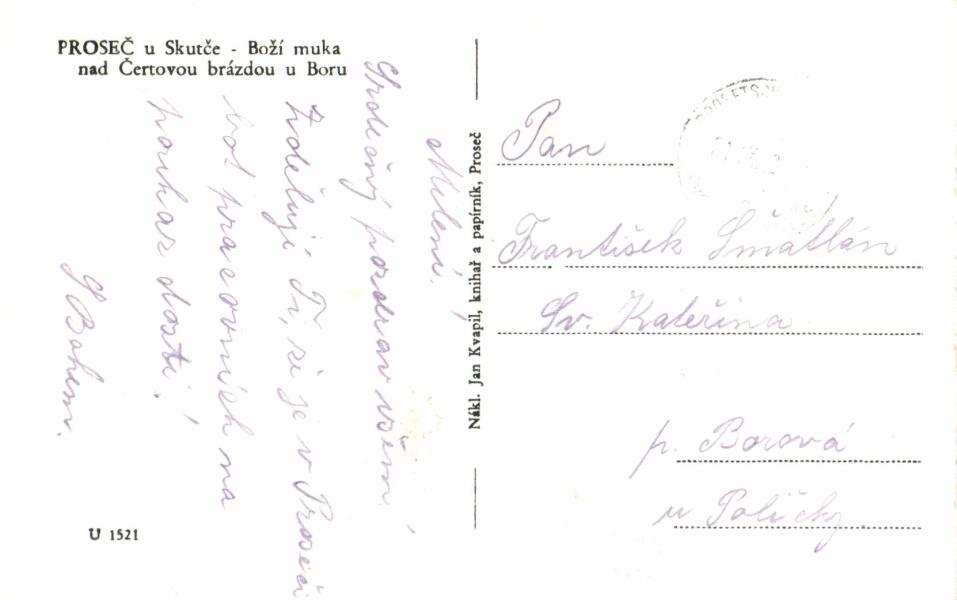 PROSEČ u Skutče - Boží muka
nad Čertovou brázdou u Boru
Milení.
Srdečný pozdrav všem!
Zděluji Ti, že je v Proseči
bot pracovních na
poukaz dosti!
S Bohem.
U 1521
Nákl. Jan Kvapil, knihař a papírník, Proseč
Pan
František Šmatlán
Sv. Kateřina
p. Borová
u Poličky